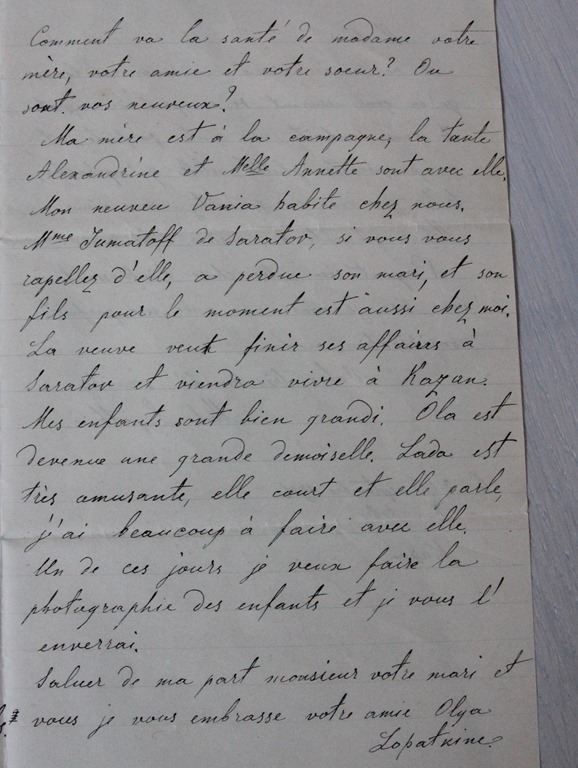 Comment va la santé de madame votre
mère, votre amie et votre soeur? Ou
sont vos neuveux?
Ma mère est à la campagne, la tante
Alexandrine et Melle Annette sont avec elle,
Mon neuveu Vania habite chez nous.
Mme Jumatoff de Saratov, si vous vous
rapellez d'elle, a perdue son mari, et son
fils pour le moment est aussi chez moi.
La veuve veut finir ses affaires à
Saratov et viendra vivre à Kazan.
Mes enfants sont bien grandi. Ola est
devenue une grande demoiselle. Lada est
très amusante, elle court et elle parle,
j'ai beaucoup à faire avec elle.
Un de ces jours je veux faire la
photographie des enfants et je vous l'
enverrai.
Saluer de ma part monsieur votre mari et
vous je vous embrasse votre amie Olga
Lopatkine.